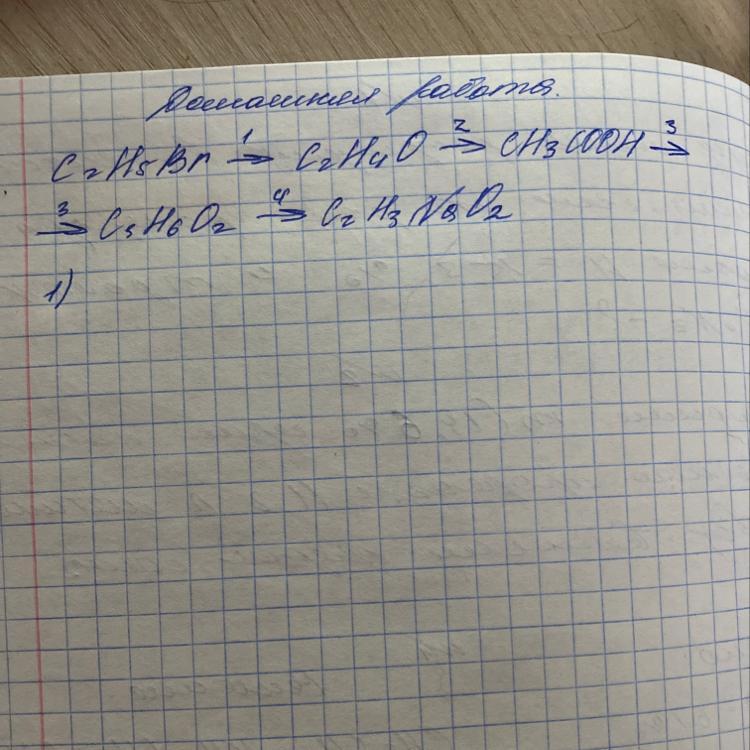 Домашняя работа.
C₂H₅Br →¹ C₂H₄O →² CH₃COOH →³
→³ C₃H₆O₂ →⁴ C₂H₃NaO₂
1)